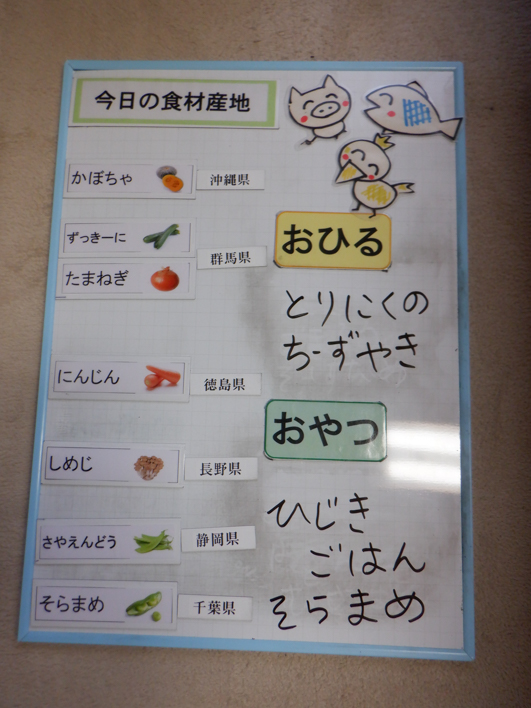 今日の食材産地
かぼちゃ 沖縄県
ずっきーに
群馬県
たまねぎ
にんじん 徳島県
しめじ 長野県
さやえんどう 静岡県
そらまめ 千葉県
おひる
とりにくの
ちーずやき
おやつ
ひじき
ごはん
そらまめ